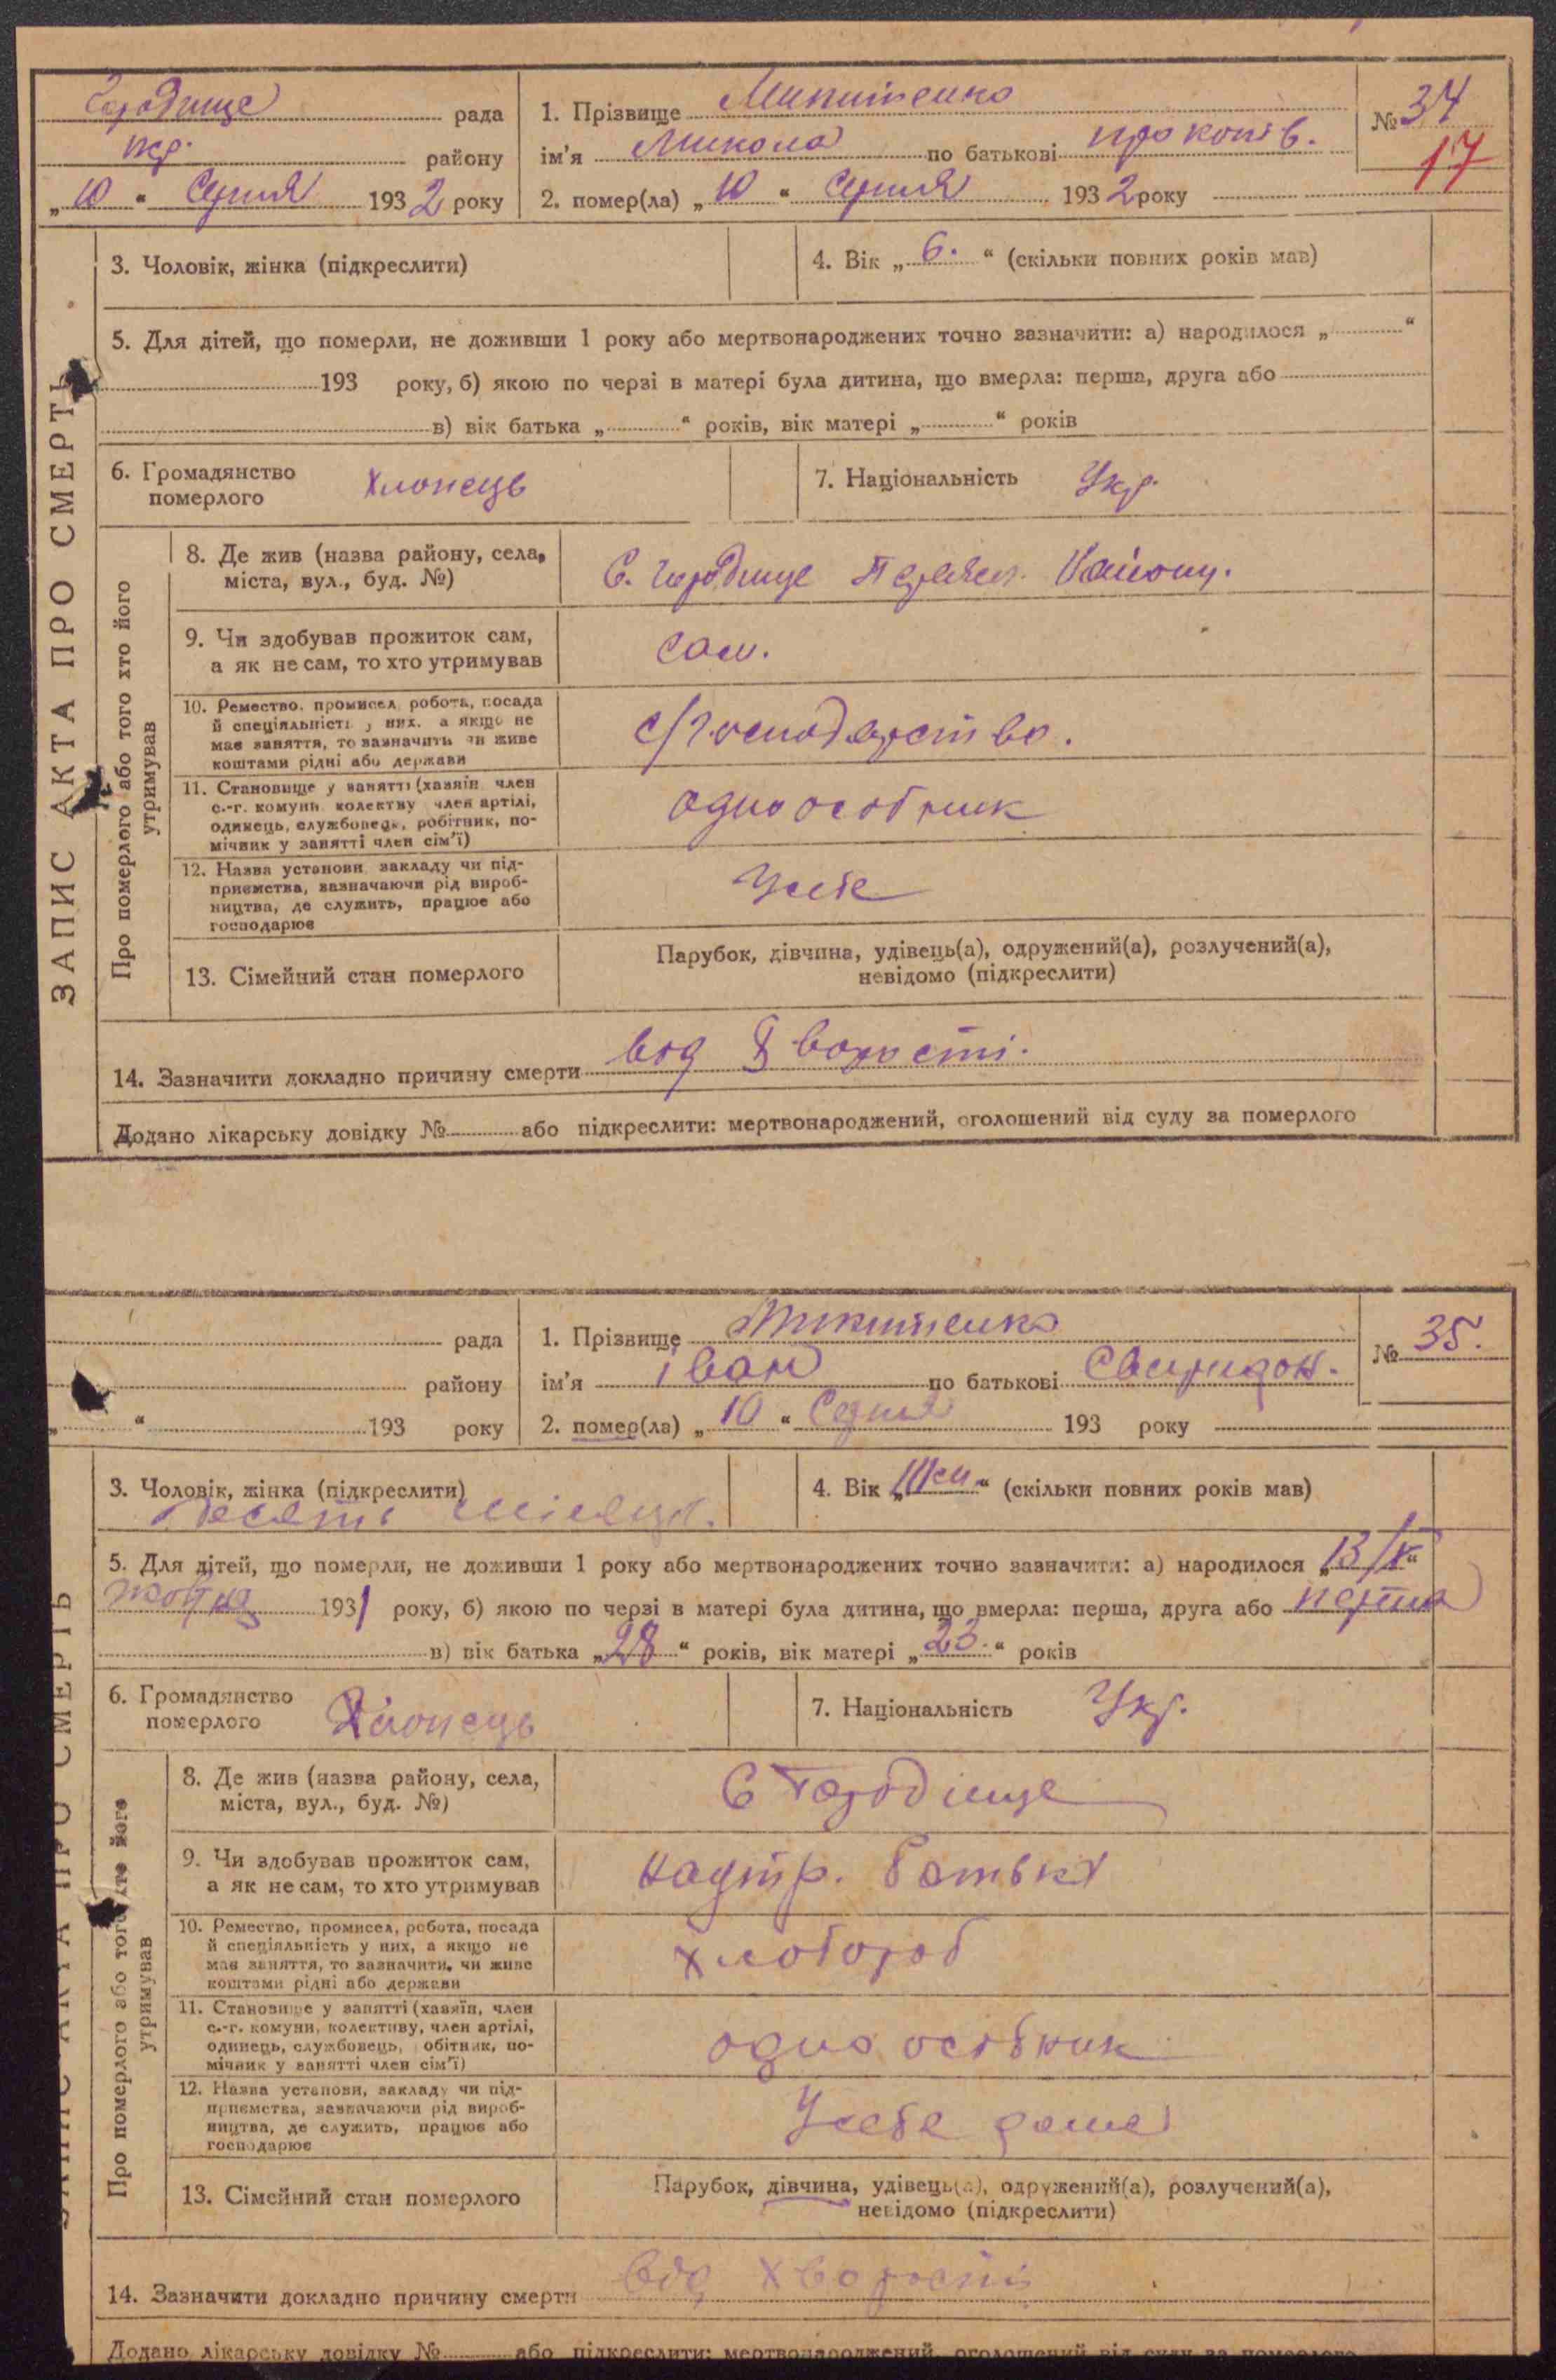 Городище рада
пер. району
„ 10 “ Серпня 1932 року
1. Прізвище Микитенко
ім'я Микола по батькові Прокопів.
2. помер(ла) „ 10 “ Серпня 1932 року
№ 34
17
ЗАПИС АКТА ПРО СМЕРТЬ
3. Чоловік, жінка (підкреслити)
4. Вік „ 6. “ (скільки повних років мав)
5. Для дітей, що померли, не доживши 1 року або мертвонароджених точно зазначити: а) народилося „ “
193 року, б) якою по черзі в матері була дитина, що вмерла: перша, друга або
в) вік батька „ “ років, вік матері „ “ років
6. Громадянство
померлого
Хлопець
7. Національність Укр.
Про померлого або того хто його
утримував
8. Де жив (назва району, села,
міста, вул., буд. №)
С. Городище Переясл. Району.
9. Чи здобував прожиток сам,
а як не сам, то хто утримував
Сам.
10. Ремество, промисел, робота, посада
й спеціяльність у них, а якщо не
має заняття, то зазначить чи живе
коштами рідні або держави
с/господарство.
11. Становище у занятті (хазяїн, член
с.-г. комуни, колективу, член артілі,
одинець, службовець, робітник, по-
мічник у занятті член сім'ї)
одноособник
12. Назва установи, закладу чи під-
приємства, зазначаючи рід вироб-
ництва, де служить, працює або
господарює
У себе
13. Сімейний стан померлого
Парубок, дівчина, удівець(а), одружений(а), розлучений(а),
невідомо (підкреслити)
14. Зазначити докладно причину смерти від Хворости.
Додано лікарську довідку № або підкреслити: мертвонароджений, оголошений від суду за померлого
рада
району
„ “ 193 року
1. Прізвище Микитенко
ім'я Іван по батькові Свиридон.
2. помер(ла) „ 10 “ Серпня 193 року
№ 35.
ЗАПИС АКТА ПРО СМЕРТЬ
3. Чоловік, жінка (підкреслити)
Десять місяців.
4. Вік „ “ (скільки повних років мав)
5. Для дітей, що померли, не доживши 1 року або мертвонароджених точно зазначити: а) народилося „ 13/X “
жовтня 1931 року, б) якою по черзі в матері була дитина, що вмерла: перша, друга або перша
в) вік батька „ 28 “ років, вік матері „ 23. “ років
6. Громадянство
померлого
Хлопець
7. Національність Укр.
Про померлого або того хто його
утримував
8. Де жив (назва району, села,
міста, вул., буд. №)
С Городище
9. Чи здобував прожиток сам,
а як не сам, то хто утримував
батька
10. Ремество, промисел, робота, посада
й спеціяльність у них, а якщо не
має заняття, то зазначити, чи живе
коштами рідні або держави
хлібороб
11. Становище у занятті (хазяїн, член
с.-г. комуни, колективу, член артілі,
одинець, службовець, робітник, по-
мічник у занятті член сім'ї)
одноособник
12. Назва установи, закладу чи під-
приємства, зазначаючи рід вироб-
ництва, де служить, працює або
господарює
У себе дома
13. Сімейний стан померлого
Парубок, дівчина, удівець(а), одружений(а), розлучений(а),
невідомо (підкреслити)
14. Зазначити докладно причину смерти від хворости
Додано лікарську довідку № або підкреслити: мертвонароджений, оголошений від суду за померлого